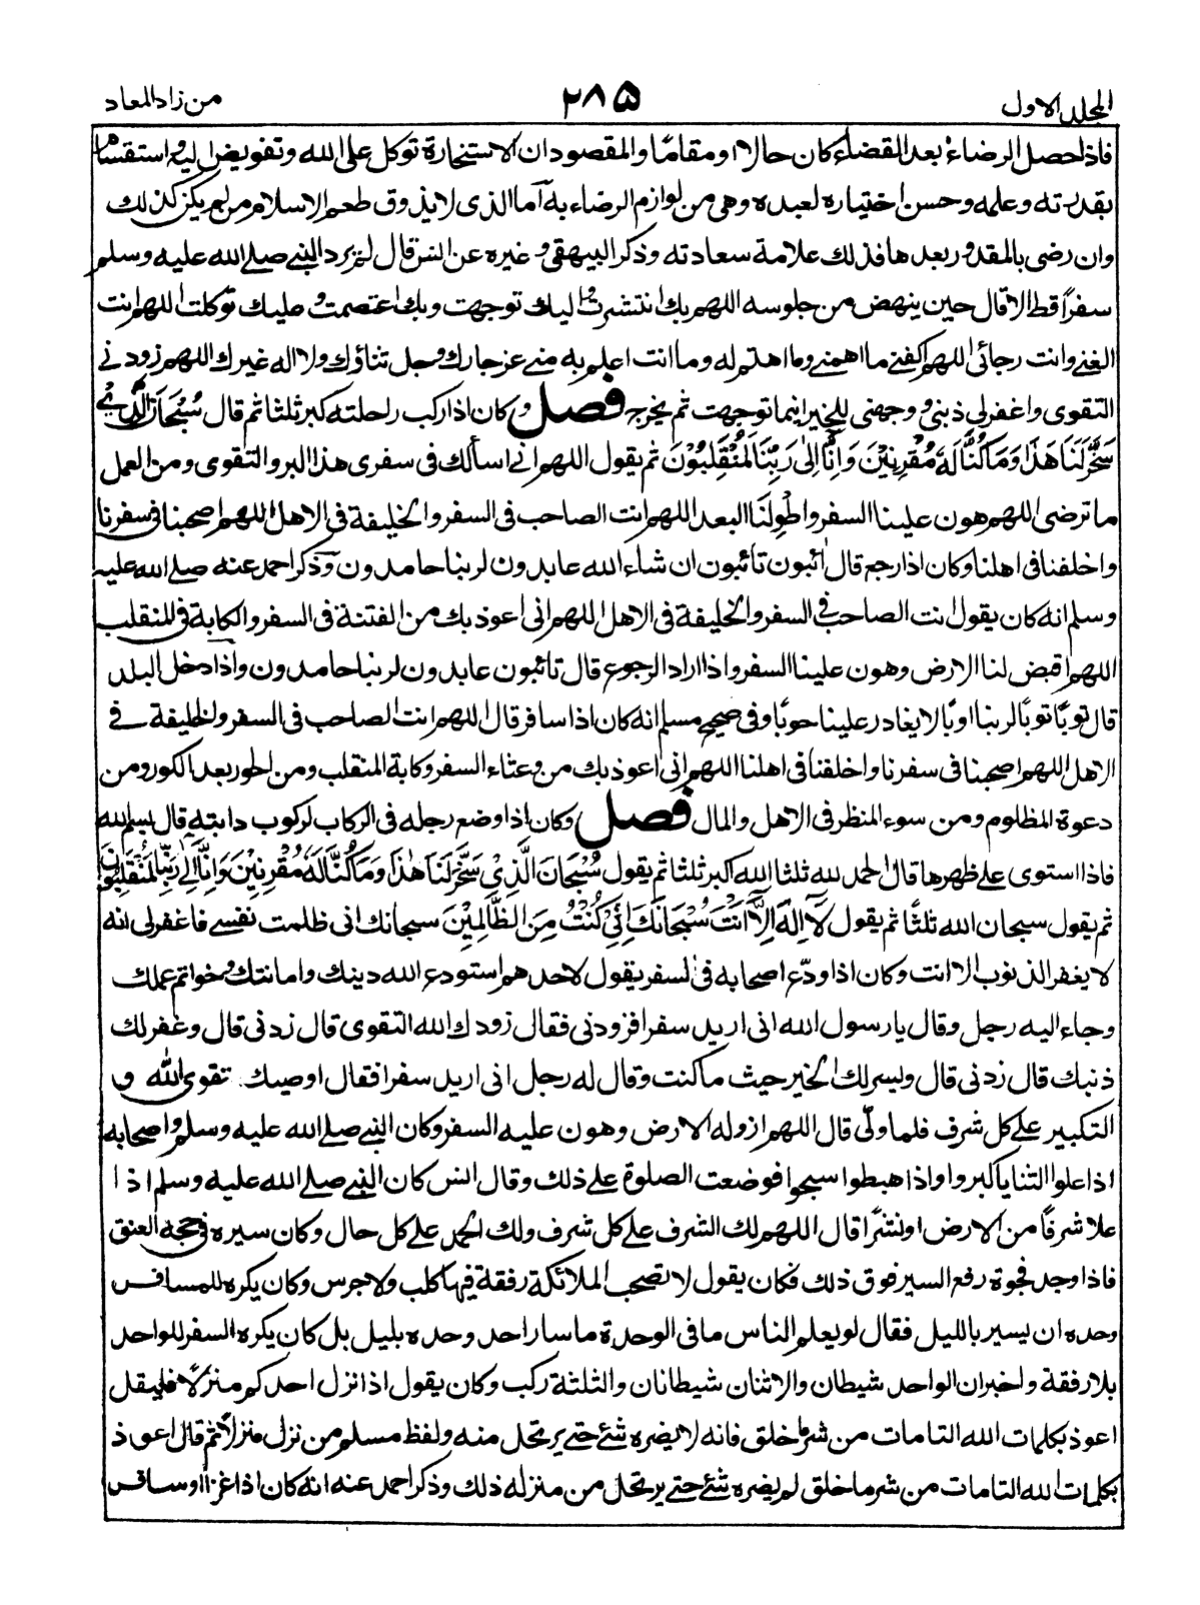 المجلد الاول ٢٨۵ من زاد المعاد
فاذا حصل الرضاء بعد القضاء كان حالا او مقاما والمقصود ان الاستخارة توكل على الله وتفويض اليه واستقسام
بقدرته وعلمه وحسن اختياره لعبده وهى من لوازم الرضاء به ربا الذى لا يذوق طعم الاسلام من لم يكن كذلك
وان رضى بالمقدور بعدها فذلك علامة سعادته وذكر البيهقى وغيره عن انس قال لم يرد النبى صلى الله عليه وسلم
سفرًا قط الا قال حين ينهض من جلوسه اللهم بك انتشرت واليك توجهت وبك اعتصمت وعليك توكلت اللهم انت
الغنى وانت رجائى اللهم اكفنى ما اهمنى وما اهتم له وما انت اعلم به منى عز جارك وجل ثناؤك ولا اله غيرك اللهم زودنى
التقوى واغفر لى ذنبى ووجهنى للخير اينما توجهت ثم يخرج فصل وكان اذا ركب راحلته كبر ثلثا ثم قال سُبْحَانَ الَّذِىْ
سَخَّرَ لَنَا هَذَا وَمَا كُنَّا لَهٗ مُقْرِنِيْنَ وَاِنَّا اِلٰى رَبِّنَا لَمُنْقَلِبُوْنَ ثم يقول اللهم انى اسألك فى سفرى هذا البر والتقوى ومن العمل
ما ترضى اللهم هون علينا السفر واطو لنا البعد اللهم انت الصاحب فى السفر والخليفة فى الاهل اللهم اصحبنا فى سفرنا
واخلفنا فى اهلنا وكان اذا رجع قال ائبون تائبون ان شاء الله عابدون لربنا حامدون وذكر احمد عنه صلى الله عليه
وسلم انه كان يقول انت الصاحب فى السفر والخليفة فى الاهل اللهم انى اعوذ بك من الفتنة فى السفر والكابة فى المنقلب
اللهم اقبض لنا الارض وهون علينا السفر واذا اراد الرجوع قال تائبون عابدون لربنا حامدون واذا دخل البلد
قال توبًا توبًا لربنا اوبًا لا يغادر علينا حوبًا وفى صحيح مسلم انه كان اذا سافر قال اللهم انت الصاحب فى السفر والخليفة فى
الاهل اللهم اصحبنا فى سفرنا واخلفنا فى اهلنا اللهم انى اعوذ بك من وعثاء السفر وكابة المنقلب ومن الحور بعد الكور ومن
دعوة المظلوم ومن سوء المنظر فى الاهل والمال فصل وكان اذا وضع رجله فى الركاب لركوب دابته قال بسم الله
فاذا استوى على ظهرها قال الحمد لله ثلثا الله اكبر ثلثا ثم يقول سُبْحَانَ الَّذِىْ سَخَّرَ لَنَا هٰذَا وَمَا كُنَّا لَهٗ مُقْرِنِيْنَ وَاِنَّا اِلٰى رَبِّنَا لَمُنْقَلِبُوْنَ
ثم يقول سبحان الله ثلثًا ثم يقول لَآ اِلٰهَ اِلَّا اَنْتَ سُبْحَانَكَ اِنِّىْ كُنْتُ مِنَ الظَّالِمِيْنَ سبحانك انى ظلمت نفسى فاغفر لى انه
لا يغفر الذنوب الا انت وكان اذا ودّع اصحابه فى السفر يقول لاحدهم استودع الله دينك وامانتك وخواتم عملك
وجاء اليه رجل وقال يا رسول الله انى اريد سفرا فزودنى فقال زودك الله التقوى قال زدنى قال وغفر لك
ذنبك قال زدنى قال ويسر لك الخير حيث ما كنت وقال له رجل انى اريد سفرا فقال اوصيك تقوى الله و
التكبير على كل شرف فلما ولّى قال اللهم ازو له الارض وهون عليه السفر وكان النبى صلى الله عليه وسلم واصحابه
اذا علوا الثنايا كبروا واذا هبطوا سبحوا فوضعت الصلوة على ذلك وقال انس كان النبى صلى الله عليه وسلم اذا
علا شرفًا من الارض او نشزًا قال اللهم لك الشرف على كل شرف ولك الحمد على كل حال وكان سيره فى حجه العنق
فاذا وجد فجوة رفع السير فوق ذلك فكان يقول لا تصحب الملائكة رفقة فيها كلب ولا جرس وكان يكره للمسافر
وحده ان يسير بالليل فقال لو يعلم الناس ما فى الوحدة ما سار احد وحده بليل بل كان يكره السفر للواحد
بلا رفقة واخبر ان الواحد شيطان والاثنان شيطانان والثلثة ركب وكان يقول اذا نزل احدكم منزلًا فليقل
اعوذ بكلمات الله التامات من شر ما خلق فانه لا يضره شئ حتى يرتحل منه ولفظ مسلم من نزل منزلًا ثم قال اعوذ
بكلمات الله التامات من شر ما خلق لم يضره شئ حتى يرتحل من منزله ذلك وذكر احمد عنه انه كان اذا غزا او سافر